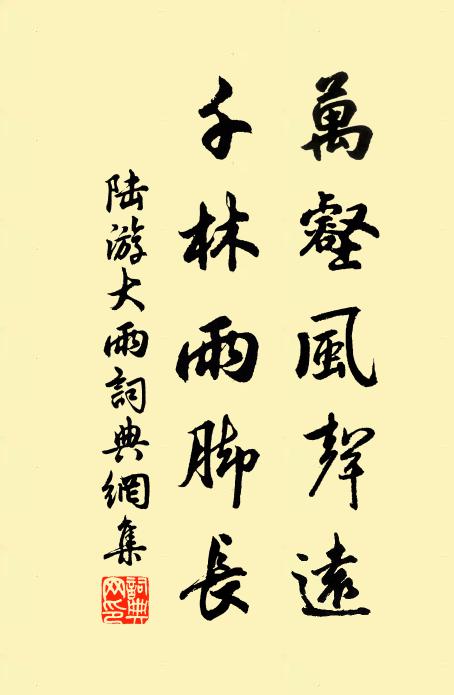 萬壑風聲遠
千林雨腳長
陸游大雨詞典網集
詞典网印